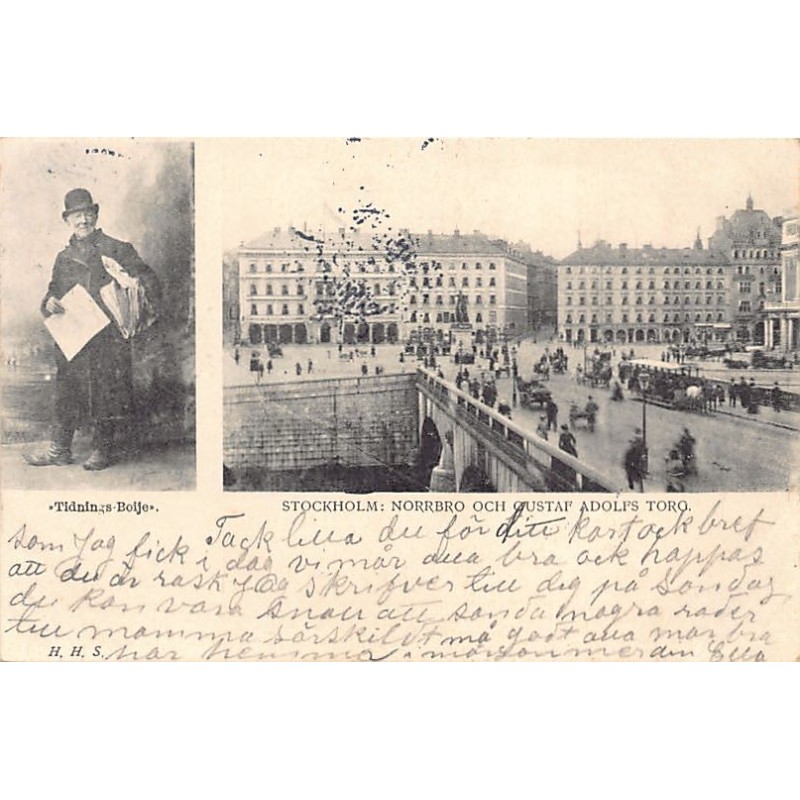 »Tidnings-Boije».
STOCKHOLM: NORRBRO OCH GUSTAF ADOLFS TORG.
Tack lilla du för ditt kort ock bref
som jag fick i dag vi mår alla bra ock hoppas
att du är rask Jag skrifver till dig på Söndag
du kan vara snäll att sända några rader
till mamma särskildt må godt alla mår bra
H. H. S.
här hemma i morson Ella